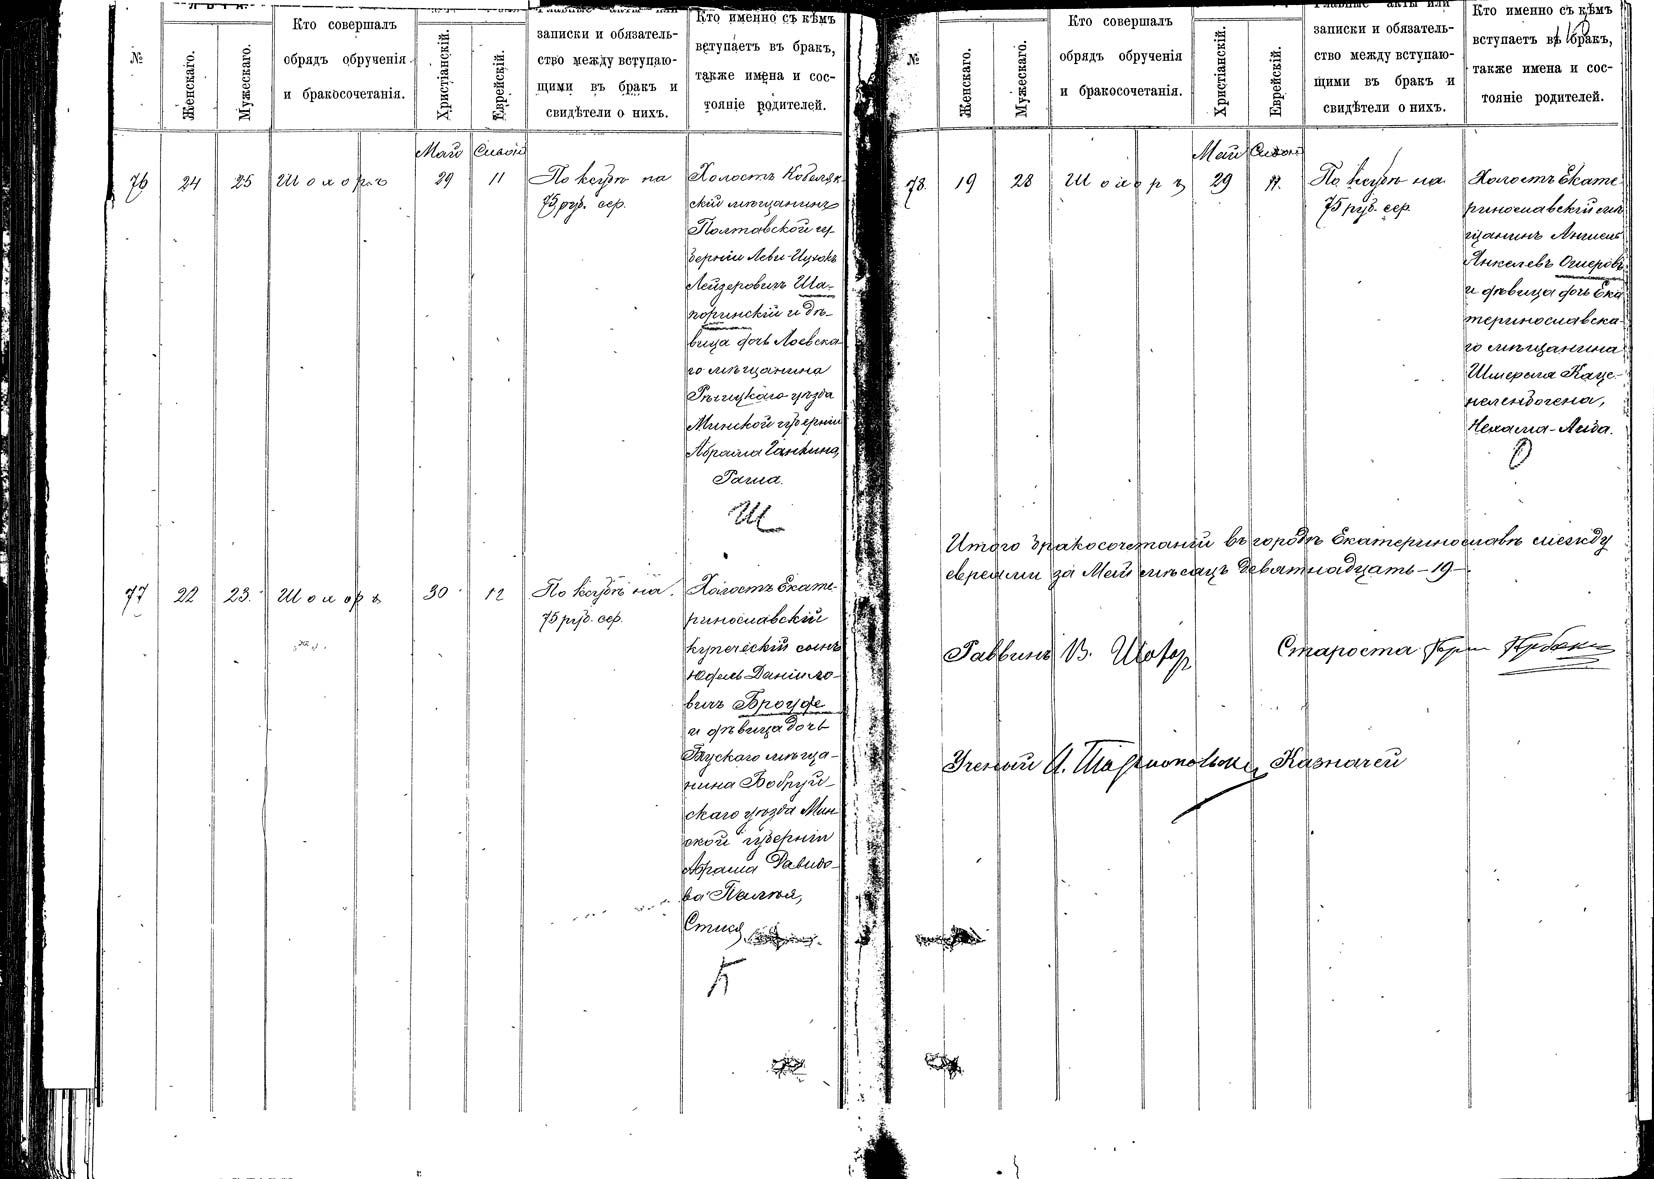 ЛѢТА.
№
Женскаго.
Мужескаго.
Кто совершалъ
обрядъ обрученія
и бракосочетанія.
Христіанскій.
Еврейскій.
Главные акты или
записки и обязатель-
ство между вступаю-
щими въ бракъ и
свидѣтели о нихъ.
Кто именно съ кѣмъ
вступаетъ въ бракъ,
также имена и сос-
тояніе родителей.
Май Сивон
76 24 25 Шолоръ 29 11
По ксубѣ на
75 руб. сер.
Холостъ Кобеляк-
скій мѣщанинъ
Полтавской гу-
берніи Леви-Ицхокъ
Лейзеровичъ Ша-
поринскій и дѣ-
вица дочь Лоевска-
го мѣщанина
Рѣчицкаго уѣзда
Минской губерніи
Абрама Ганкина,
Раша.
Ш
77 22 23 Шолоръ 30 12
По ксубѣ на
75 руб. сер.
Холостъ Екате-
ринославскій
купеческій сынъ
Юдель Данило-
вичъ Броуде
и дѣвица дочь
Глускаго мѣща-
нина Бобруй-
скаго уѣзда Мин-
ской губерніи
Абрама Давидо-
ва
Б
№
Женскаго.
Мужескаго.
Кто совершалъ
обрядъ обрученія
и бракосочетанія.
Христіанскій.
Еврейскій.
Главные акты или
записки и обязатель-
ство между вступаю-
щими въ бракъ и
свидѣтели о нихъ.
Кто именно съ кѣмъ
вступаетъ въ бракъ,
также имена и сос-
тояніе родителей.
Май Сивон
78 19 28 Шолоръ 29 11
По ксубѣ на
75 руб. сер.
Холостъ Екате-
ринославскій мѣ-
щанинъ
Янкелевъ Ошеровъ
и дѣвица дочь Ека-
теринославска-
го мѣщанина
Шмерела Каце-
неленбогена,
Нехама-Леба.
О
Итого бракосочетаній въ городѣ Екатеринославѣ между
евреями за Май мѣсяцъ девятнадцать -19-
Раввинъ В. Шолор
Староста
Ученый
Казначей